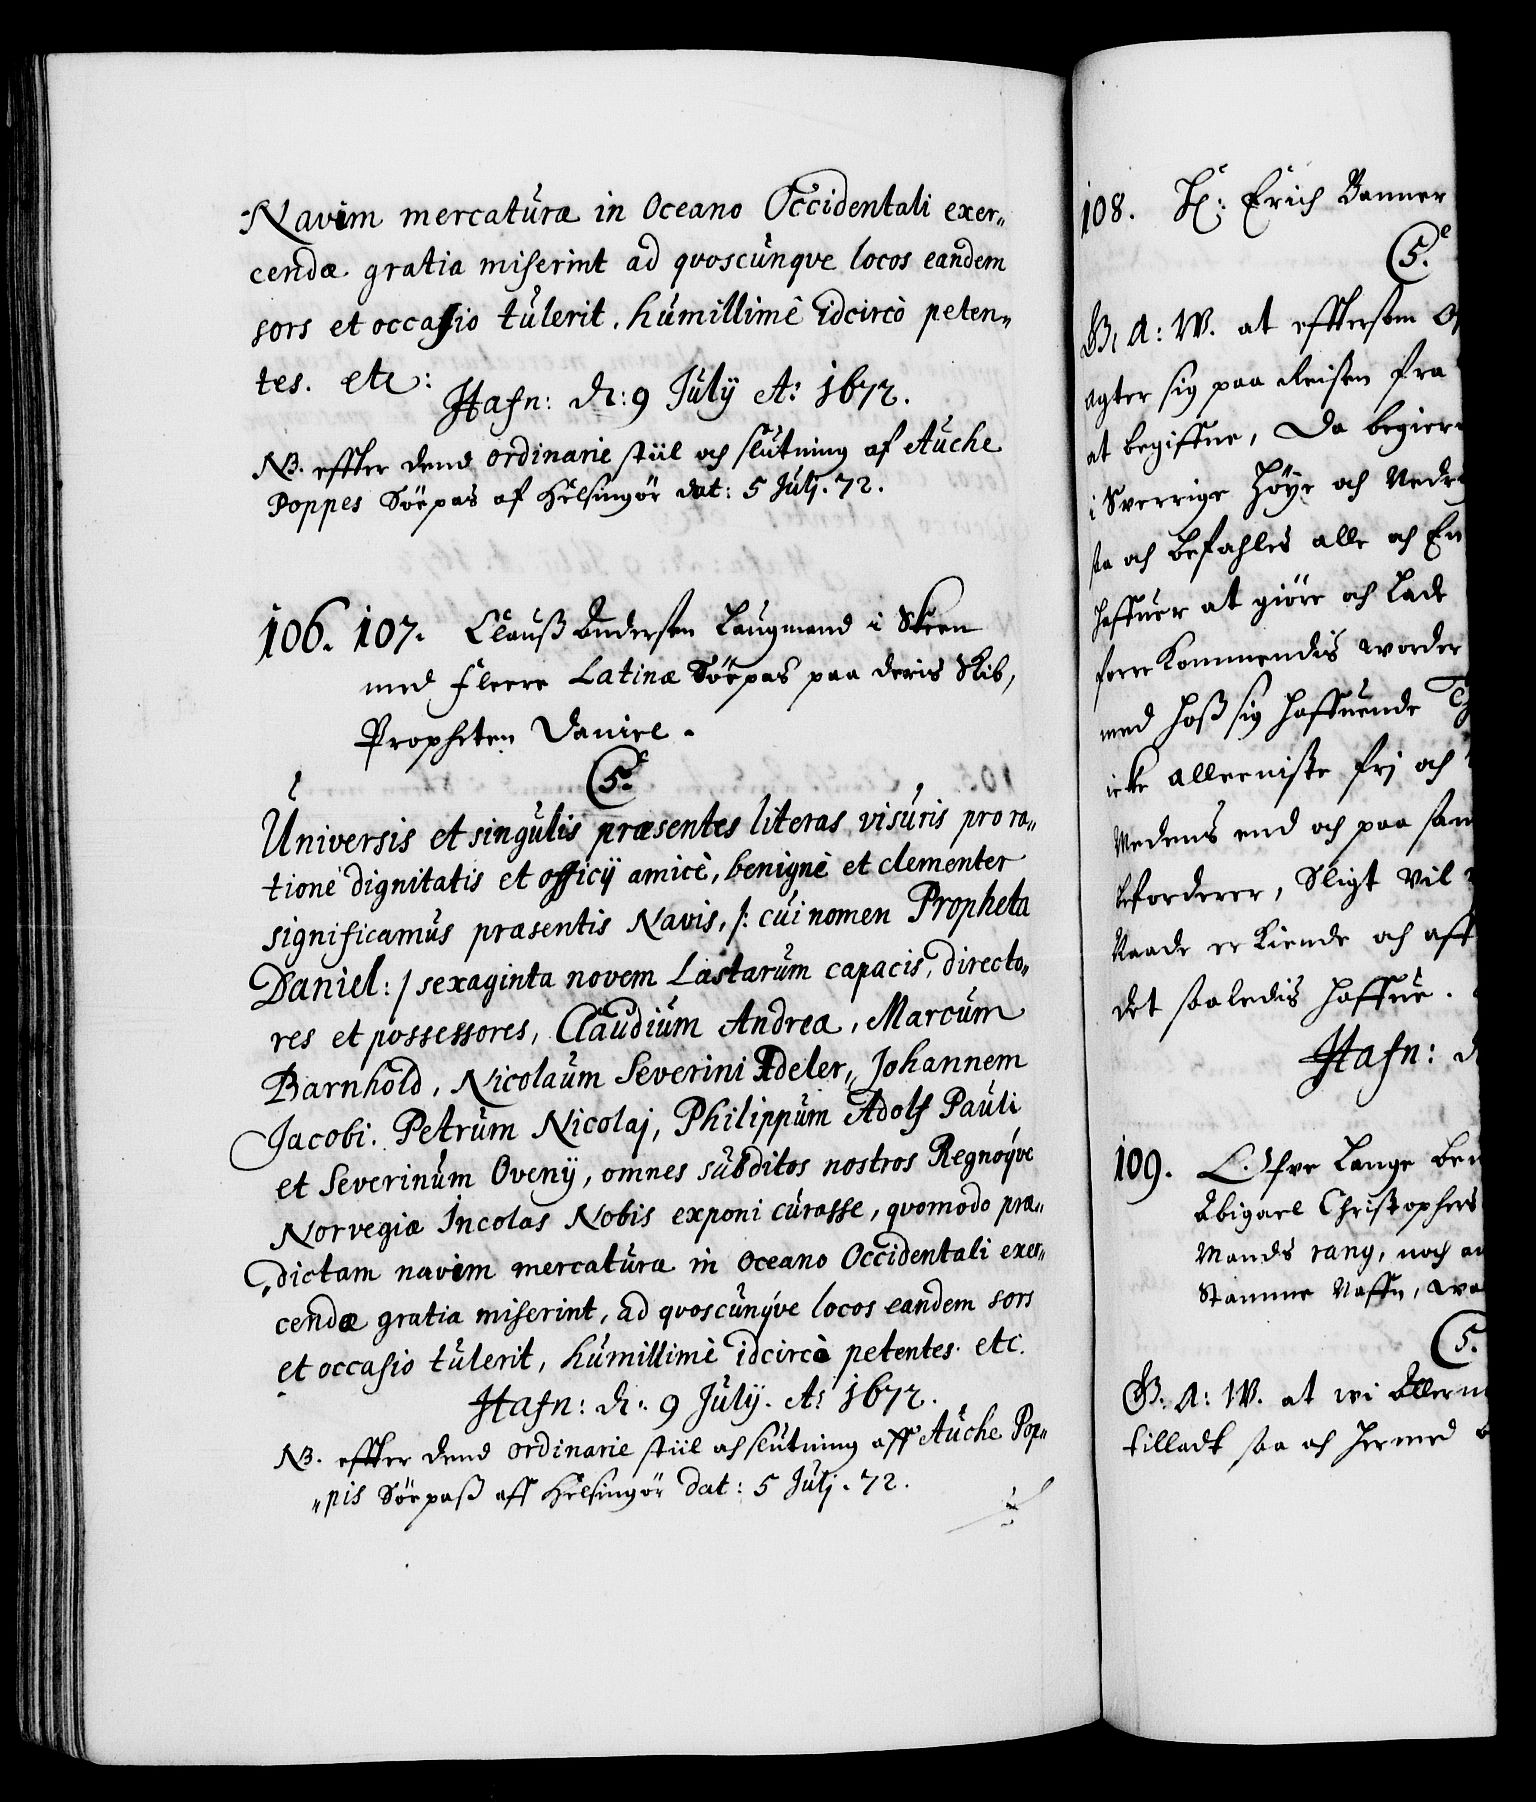 Navim mercaturæ in Oceano Occidentali exer„
cendæ gratia miserint ad qvoscunqve locos eandem
sors et occasio tulerit, humillimê idcircò peten„
tes. etc:
Hafn: d: 9 Julij A: 1672.
NB. effter dend ordinarie stiil och slutning af Auche
Poppes Söepas af Helsingör dat: 5 Julj. 72.
106. 107. Clauß Andersen Laugmand i Skeen
med fleere Latinæ Söepas paa deris Skib,
Propheten Daniel.
Universis et singulis præsentes literas visuris pro ra„
tione dignitatis et officij amicè, benignè et clementer
significamus præsentis Navis, /: cui nomen Propheta
Daniel: / sexaginta novem Lastarum capacis, directo„
res et possessores, Claudium Andreæ, Marcum
Barnhold, Nicolaum Severini Adeler, Johannem
Jacobi. Petrum Nicolaj, Philippum Adolf Pauli
et Severinum Ovenij, omnes subditos nostros Regnoqve
Norvegiæ Incolas Nobis exponi curasse, qvomodo præ„
dictam navim mercaturæ in Oceano Occidentali exer„
cendæ gratia miserint, ad qvoscunqve locos eandem sors
et occasio tulerit, humillimè idcircò petentes. etc.
Hafn: d: 9 Julij. A: 1672.
NB. effter dend ordinarie stiil och slutning aff Auche Pop„
„pis Söepaß aff Helsingör dat: 5 Julj. 72.
108. H: Erich Banner
G. A: W. at efftersom
agter sig paa Reisen fra
at begiffue, Da begier
i Sverrige Höye och Nedr
sta och befahles alle och En
haffuer at giöre och Lade
forrekommendis worder
med hoß sig haffuende
icke alleeniste frj och
Medens end och paa sam
beforderer, Sligt Vil
Naade erkiende och aff
det saaledis haffue.
Hafn: d
109. Ofve Lange
Abigael Christophers
Mands rang, noch
Stamme Naffn,
G. A: W. at wi Allern
tilladt saa och hermed